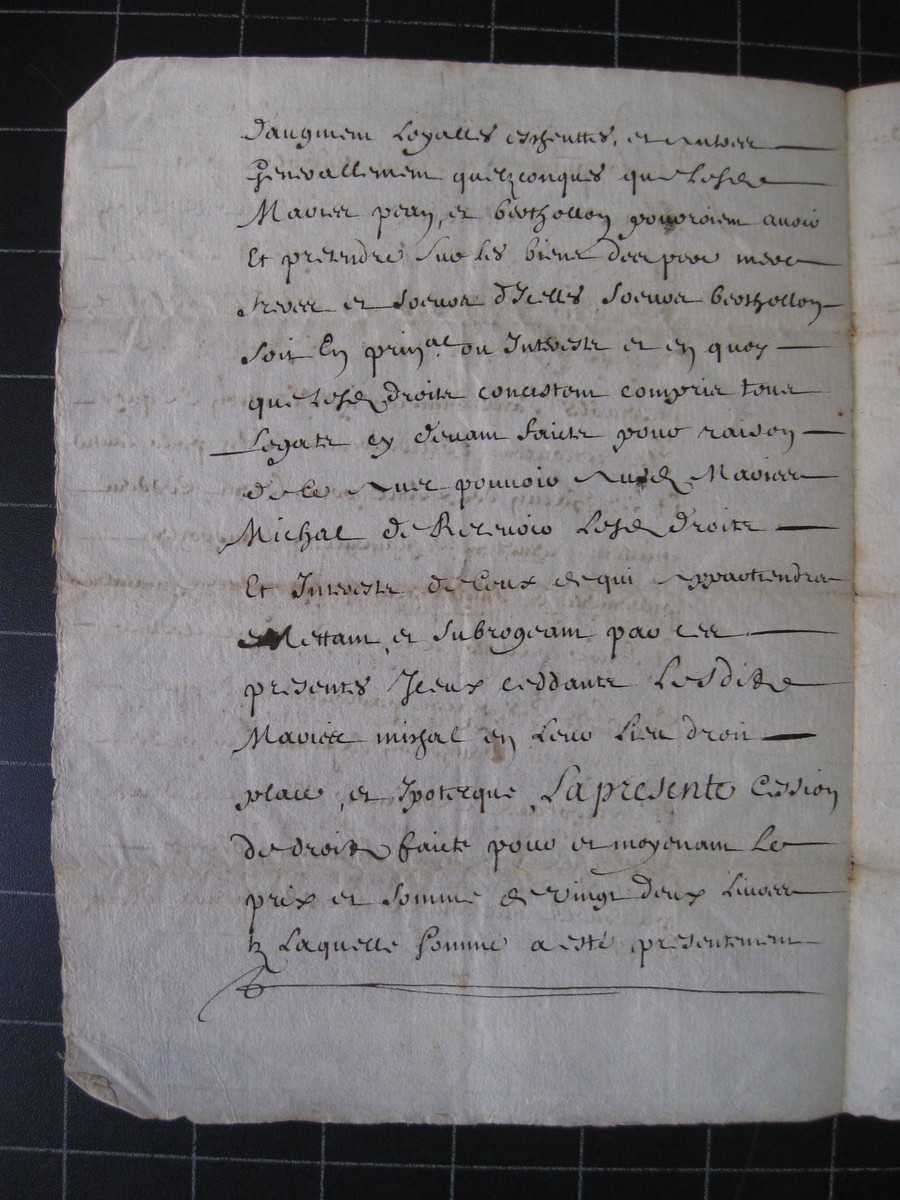 daugment Loyalles escheuttes, et autres
Generallement quelzconques que Lesd
Mariez pean, et berthollon pouroient avoir
Et pretendre Sur les biens des pere mere
freres et Soeurs d'Icelles Soeurs berthollon
Soit En prin.al ou Interests et en quoy
que Lesd droits concistent compris tous
Legats cy devant faicts pour raison
de ce avec pouvoir ausd Mariez
Michal de Recevoir Lesd droits
Et Interests de Ceux de qui appartiendra
Mettant, et Subrogeant par ces
presentes Iceux ceddants Lesdits
Mariez michal en Leur Lieu droit
place, et Ipoteque, La presente Cession
de droits faicte pour et moyenant Le
prix et Somme de vingt deux Livres
tz Laquelle Somme a esté presentement